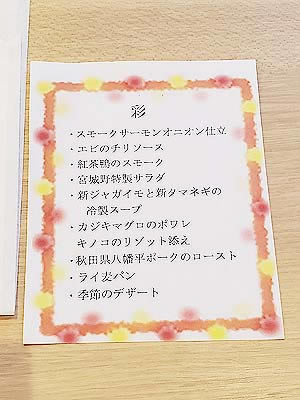 彩
・スモークサーモンオニオン仕立
・エビのチリソース
・紅茶鴨のスモーク
・宮城野特製サラダ
・新ジャガイモと新タマネギの
冷製スープ
・カジキマグロのポワレ
キノコのリゾット添え
・秋田県八幡平ポークのロースト
・ライ麦パン
・季節のデザート